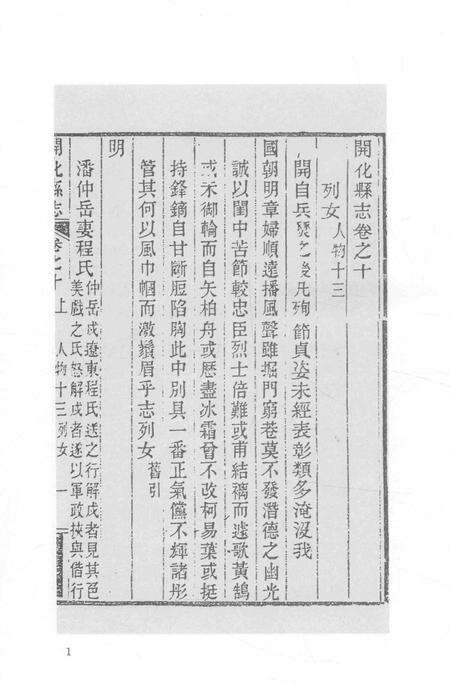 開化縣志卷之十
列女 人物十三
開自兵燹之後凡殉節貞姿未經表彰類多淹沒我
國朝明章婦順遠播風聲雖掘門窮巷莫不發潛德之幽光
誠以閨中苦節較忠臣烈士倍難或甫結褵而遽歌黃鵠
或未御輪而自矢柏舟或歷盡冰霜曾不改柯易葉或挺
持鋒鏑自甘斷脰陷胸此中別具一番正氣儻不輝諸彤
管其何以風巾幗而激鬚眉乎志列女 舊引
明
潘仲岳妻程氏 仲岳戍遼東程氏送之行解戍者見其色
美戲之氏怒解戍者遂以軍政挾與偕行
開化縣志 卷之十上 人物十三 列女 一
1